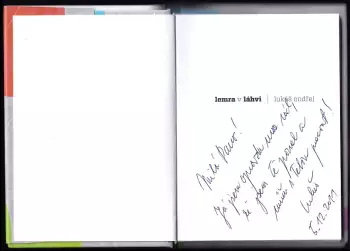 lemra v láhvi | lukáš ondřej
Milá Pavlo!
Já jsem opravdu moc rád,
že jsem Tě poznal a
s Tebou
Lukáš
5.12.2011